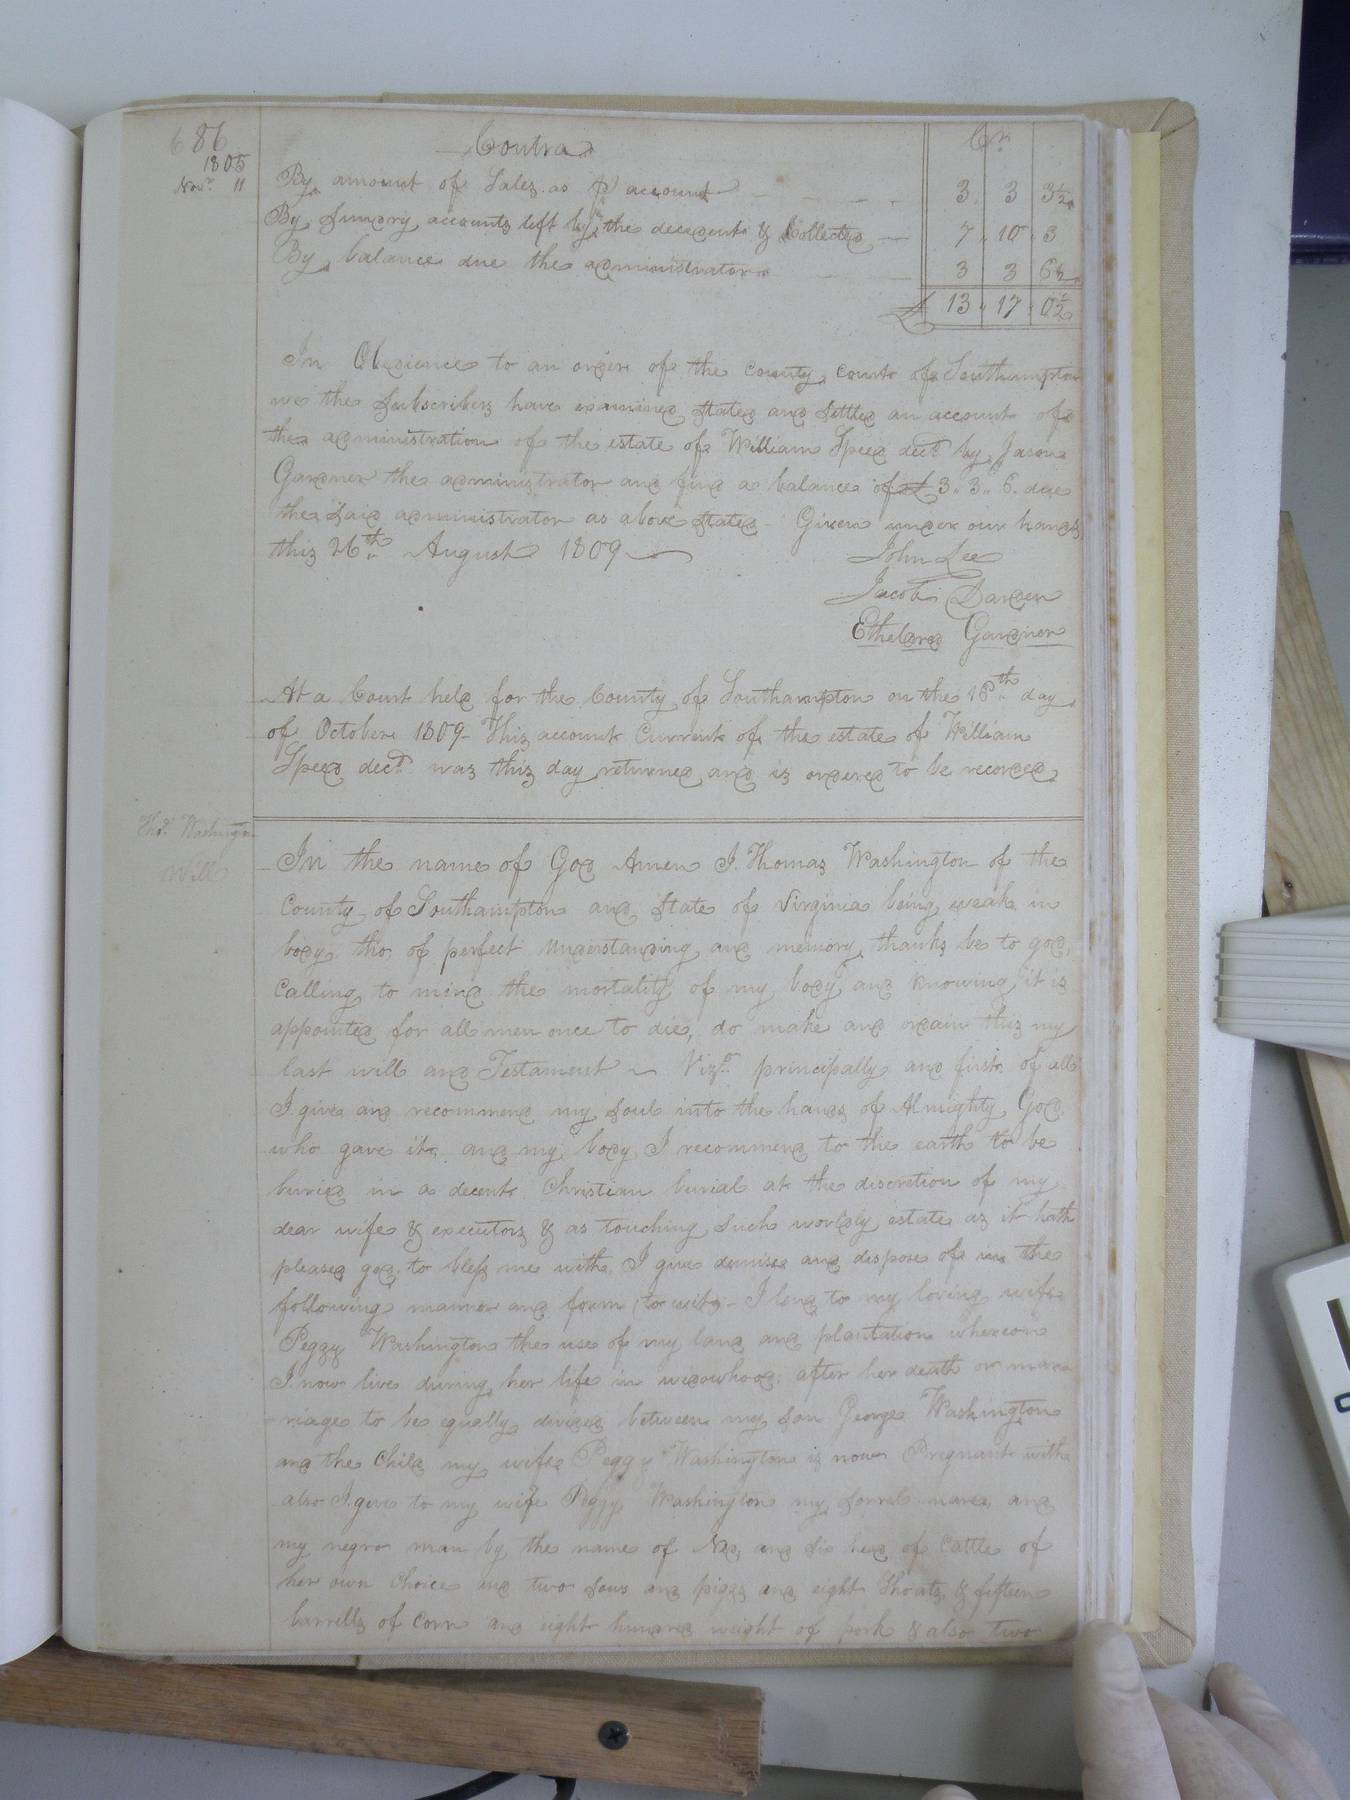 686
Contra Cr
1805
Novr 11 By amount of Sales as ⅌ account 3 3 3½
By Sundry accounts left by the decedent & Collected 7 10 3
By balance due the administrator 3 3 6½
£ 13 17 0½
In Obedience to an order of the county court of Southampton
we the Subscribers have examined Stated and Settled an account of
the administration of the estate of William Speed decd by Jason
Gardner the administrator and find a balance of £3.. 3.. 6. due
the Said administrator as above Stated - Given under our hands
this 26th August 1809
John Lee
Jacob Darden
Etheldred Gardner
At a Court held for the County of Southampton on the 18th day
of October 1809 - This account Current of the estate of William
Speed decd was this day returned and is ordered to be recorded
Thos. Washington
Will
In the name of God Amen I Thomas Washington of the
County of Southampton and State of Virginia being weak in
body tho of perfect understanding and memory thanks be to god,
Calling to mind the mortality of my body and knowing it is
appointed for all men once to die, do make and ordain this my
last will and Testament Vizt principally and first of all
I give and recommend my Soul into the hands of Almighty God
who gave it and my body I recommend to the earth to be
buried in a decent Christian burial at the discretion of my
dear wife & executors & as touching Such worldly estate as it hath
pleased god to bless me with I give demise and dispose of in the
following manner and form, to wit - I lend to my loving wife
Peggy Washington the use of my land and plantation whereon
I now live during her life in widowhood, after her death or mar-
riage to be equally divided between my Son George Washington
and the Child my wife Peggy Washington is now Pregnant with
also I give to my wife Peggy Washington my Sorrel mare, and
my negro man by the name of Ned, and Six head of Cattle of
her own choice and two Sows and piggs and eight Shoats, & fifteen
barrells of Corn and eight hundred weight of pork & also two